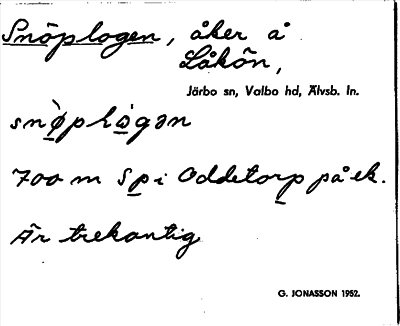 Snöplogen, åker å
Låkön,
Järbo sn, Valbo hd, Älvsb. ln.
700 m Sp i Oddetorp på ek.
Är trekantig
G. JONASSON 1952.